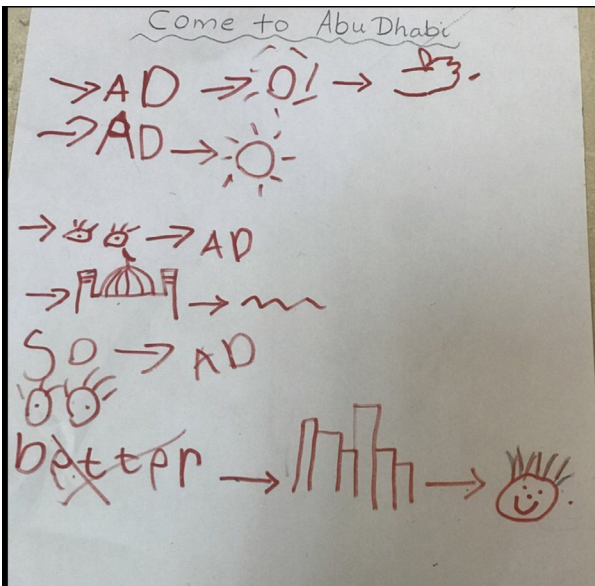 Come to Abu Dhabi
AD
AD
AD
SO AD
better